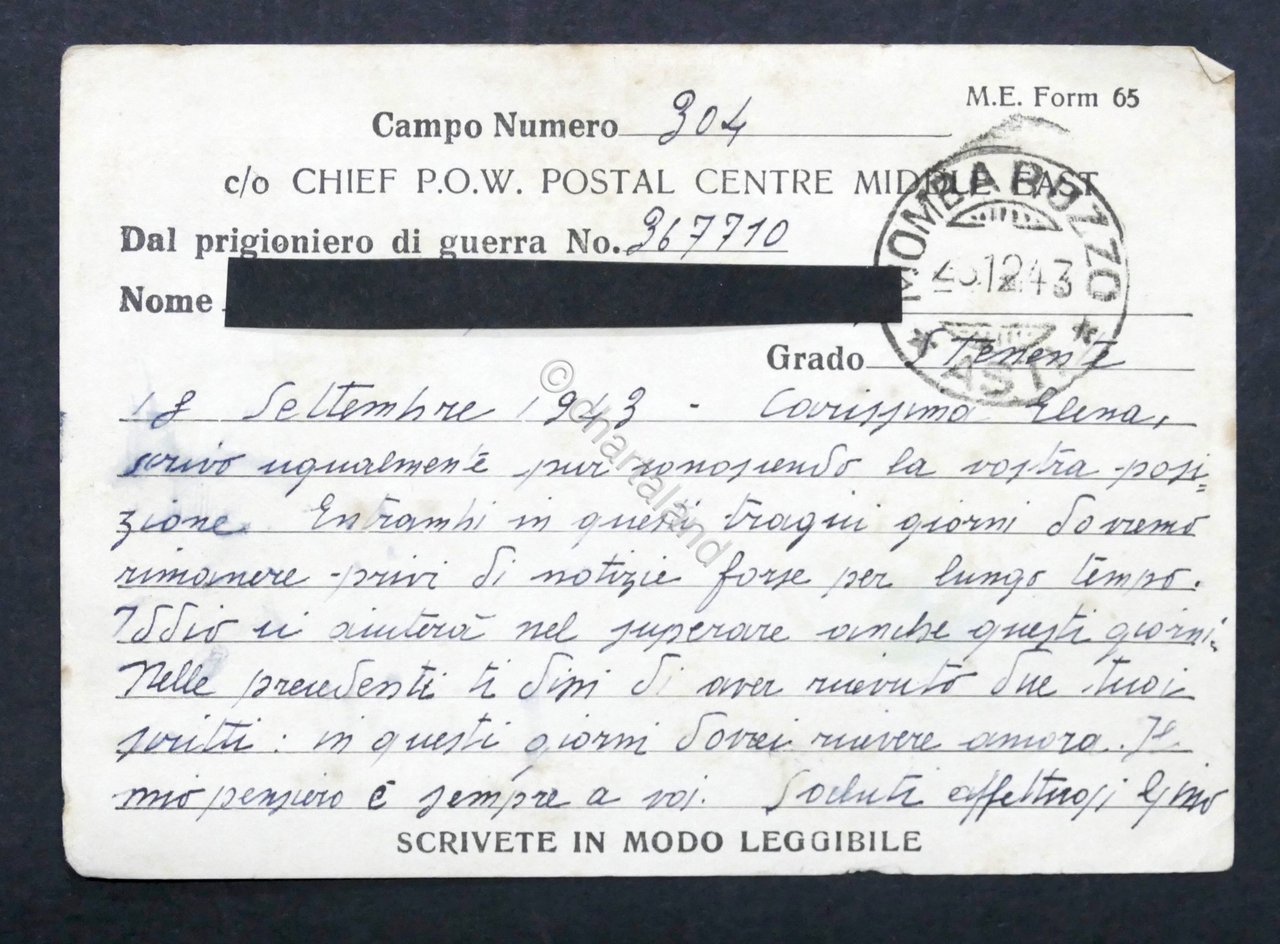 M.E. Form 65
Campo Numero 304
c/o CHIEF P.O.W. POSTAL CENTRE MIDDLE EAST
Dal prigioniero di guerra No. 367710
MOMBARUZZO
12.43
* ASTI *
Nome
Grado S Tenente
18 Settembre 1943 - Carissima Elena,
scrivo ugualmente pur conoscendo la vostra posi=
zione. Entrambi in questi tragici giorni dovremo
rimanere privi di notizie forse per lungo tempo.
Iddio ci aiuterà nel superare anche questi giorni.
Nelle precedenti ti dissi di aver ricevuto due tuoi
scritti: in questi giorni dovrei ricevere ancora. Il
mio pensiero è sempre a voi. Saluti affettuosi
SCRIVETE IN MODO LEGGIBILE
© chartaland